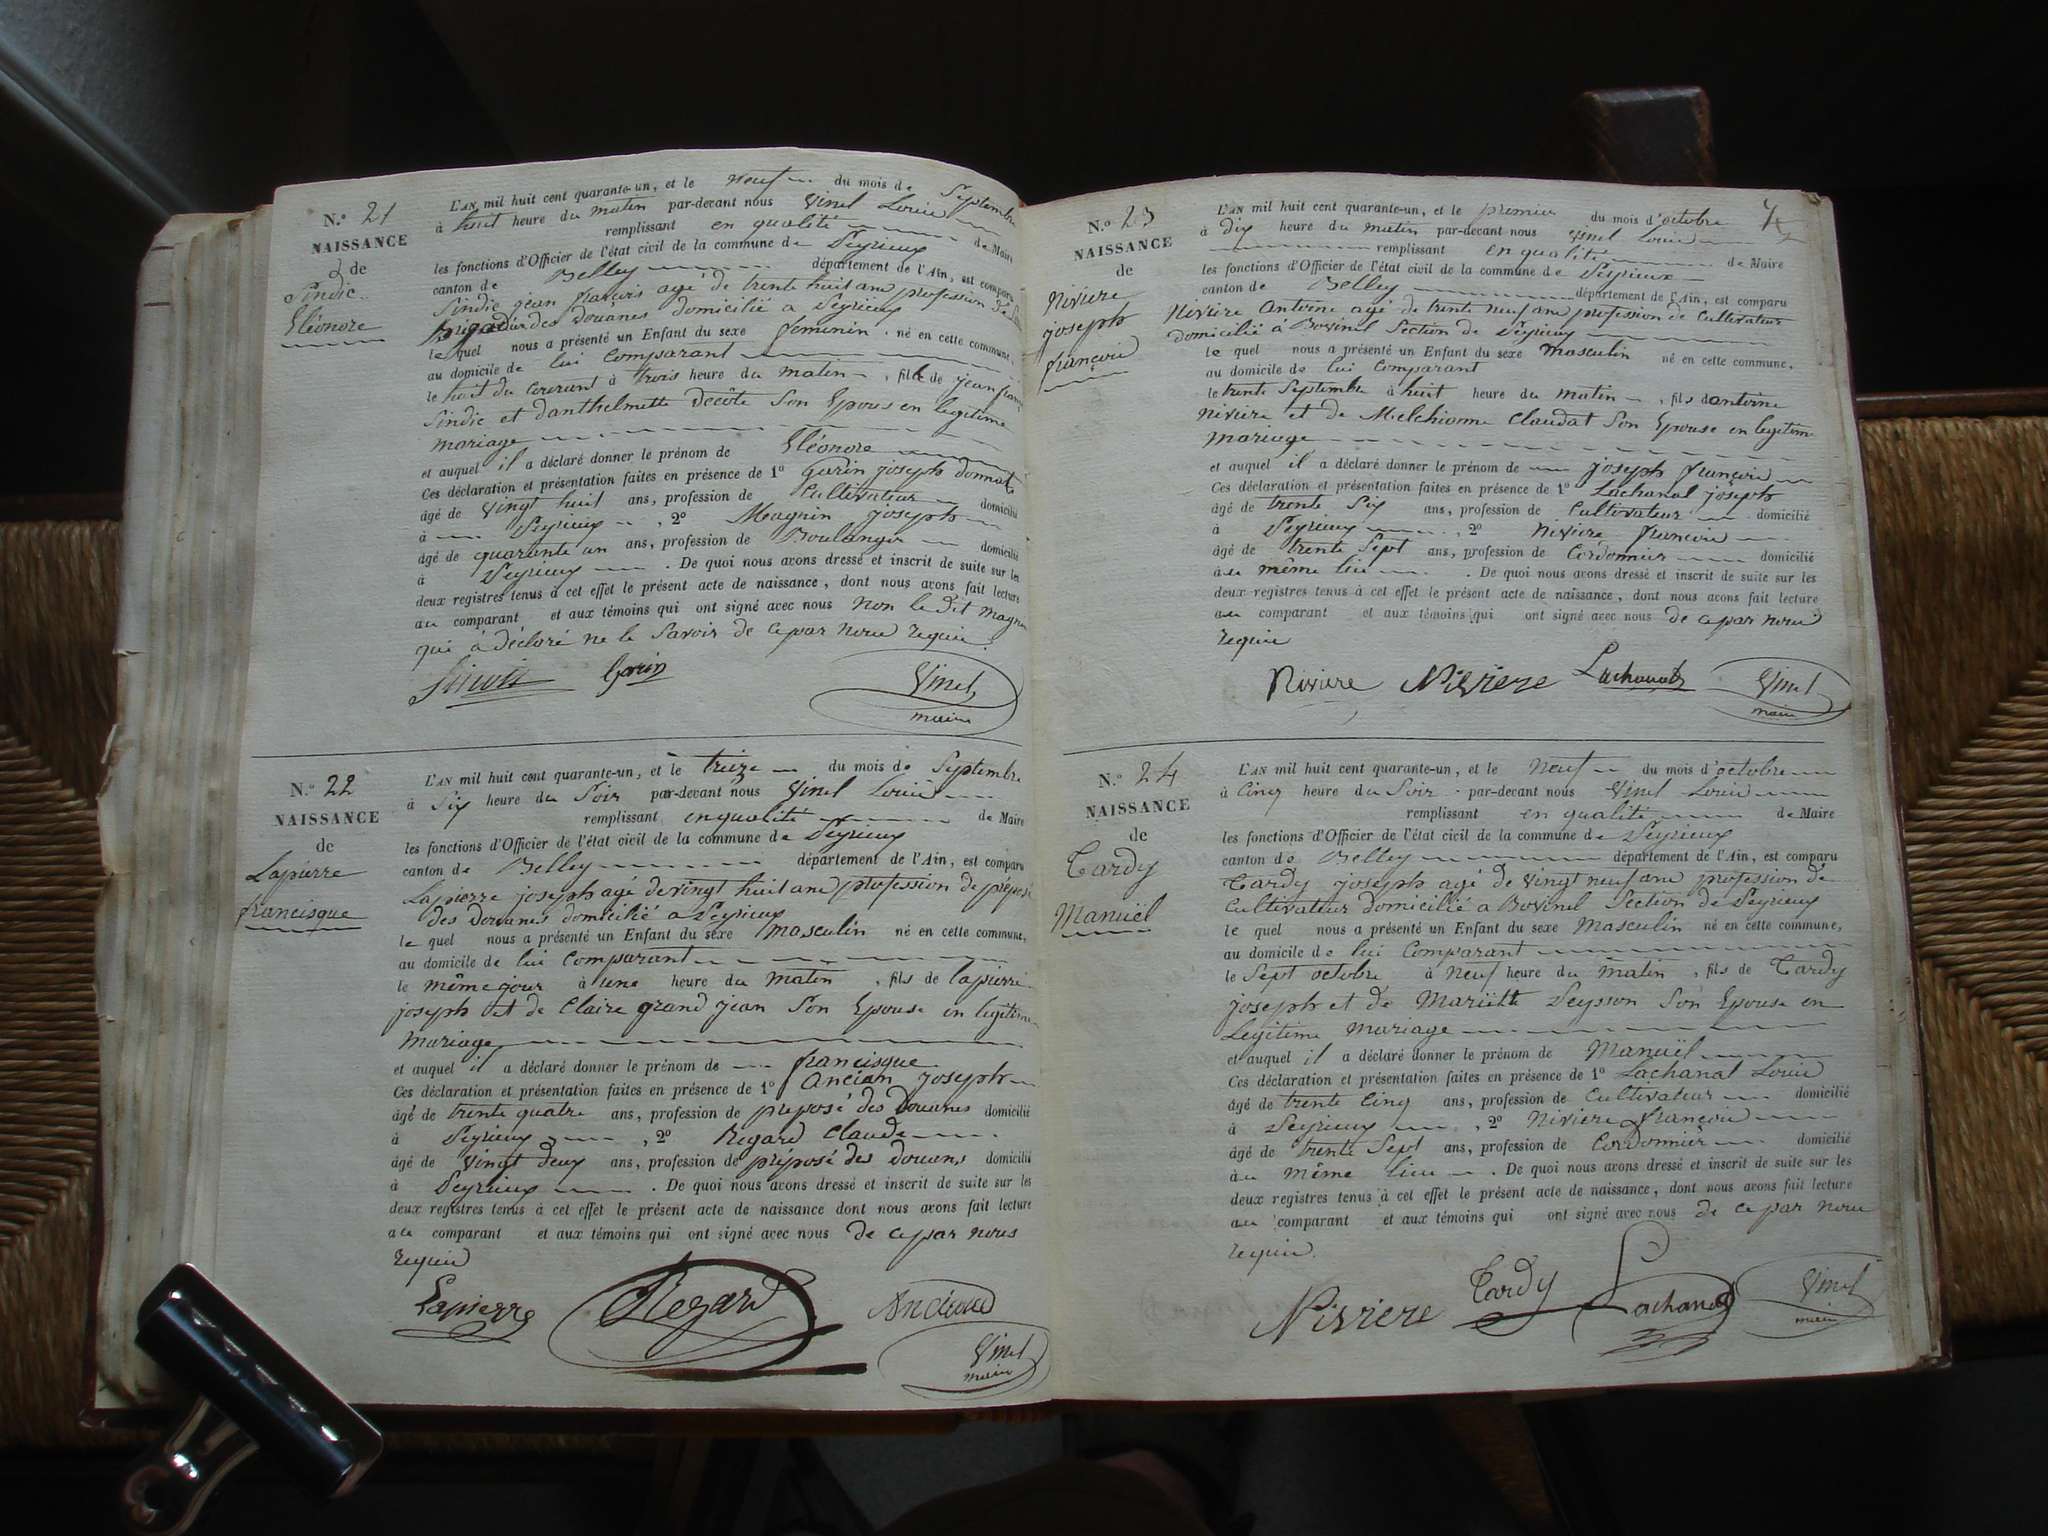 N.° 21
NAISSANCE
de
Sindic
Eléonore
L'AN mil huit cent quarante-un, et le neuf du mois de Septembre
à huit heure du matin par-devant nous Vinel Louis
remplissant en qualité de Maire
les fonctions d'Officier de l'état civil de la commune de Peyrieux
canton de Belley département de l'Ain, est comparu
Sindic jean françois agé de trente huit ans profession de
brigadier des Douanes domicilié a Peyrieux
le quel nous a présenté un Enfant du sexe feminin né en cette commune,
au domicile de lui Comparant
le huit du Courant à trois heure du matin, fille de jean
Sindic et danthelmette Son Epouse en legitime
mariage
et auquel il a déclaré donner le prénom de Eléonore
Ces déclaration et présentation faites en présence de 1° Garin joseph donnat
âgé de vingt huit ans, profession de Cultivateur domicilié
à Peyrieux, 2° Magnin joseph
âgé de quarante un ans, profession de Boulanger domicilié
à Peyrieux. De quoi nous avons dressé et inscrit de suite sur les
deux registres tenus à cet effet le présent acte de naissance, dont nous avons fait lecture
au comparant et aux témoins qui ont signé avec nous non le dit magnin
qui à déclaré ne le Savoir de ce par nous requis
Garin Vinel
maire
N.° 22
NAISSANCE
de
Lapierre
francisque
L'AN mil huit cent quarante-un, et le treize du mois de Septembre
à Six heure du Soir par-devant nous Vinel Louis
remplissant en qualité de Maire
les fonctions d'Officier de l'état civil de la commune de Peyrieux
canton de Belley département de l'Ain, est comparu
Lapierre joseph agé de vingt huit ans profession de préposé
des douanes domicilié a Peyrieux
le quel nous a présenté un Enfant du sexe Masculin né en cette commune,
au domicile de lui Comparant
le même jour à une heure du matin, fils de lapierre
joseph et de Claire grand jean Son Epouse en legitime
Mariage
et auquel il a déclaré donner le prénom de francisque
Ces déclaration et présentation faites en présence de 1° Ancian joseph
âgé de trente quatre ans, profession de préposé des Douanes domicilié
à Peyrieux, 2° Regard Claude
âgé de vingt deux ans, profession de préposé des douanes domicilié
à Peyrieux. De quoi nous avons dressé et inscrit de suite sur les
deux registres tenus à cet effet le présent acte de naissance dont nous avons fait lecture
au comparant et aux témoins qui ont signé avec nous de ce par nous
requis
Lapierre Regard
Vinel
maire
N.° 23
NAISSANCE
de
Niviere
joseph
françois
L'AN mil huit cent quarante-un, et le premier du mois d'octobre
à dix heure du matin par-devant nous Vinel Louis
remplissant en qualité de Maire
les fonctions d'Officier de l'état civil de la commune de Peyrieux
canton de Belley département de l'Ain, est comparu
Niviere Antoine agé de trente neuf ans profession de Cultivateur
domicilié à Bovinel Section de Peyrieux
le quel nous a présenté un Enfant du sexe Masculin né en cette commune,
au domicile de lui Comparant
le trente Septembre à huit heure du matin, fils d'antoine
Niviere et de Melchionne Claudat Son Epouse en legitime
mariage
et auquel il a déclaré donner le prénom de joseph françois
Ces déclaration et présentation faites en présence de 1° Lachanal joseph
âgé de trente Six ans, profession de Cultivateur domicilié
à Peyrieux, 2° Niviere françois
âgé de trente Sept ans, profession de Cordonnier domicilié
au même lieu. De quoi nous avons dressé et inscrit de suite sur les
deux registres tenus à cet effet le présent acte de naissance, dont nous avons fait lecture
au comparant et aux témoins qui ont signé avec nous de ce par nous
requis
Niviere Niviere Lachanal Vinel
maire
N.° 24
NAISSANCE
de
Tardy
Manuël
L'AN mil huit cent quarante-un, et le neuf du mois d'octobre
à Cinq heure du Soir par-devant nous Vinel Louis
remplissant en qualité de Maire
les fonctions d'Officier de l'état civil de la commune de Peyrieux
canton de Belley département de l'Ain, est comparu
Tardy joseph agé de vingt neuf ans profession de
Cultivateur domicilié a Bovinel Section de Peyrieux
le quel nous a présenté un Enfant du sexe Masculin né en cette commune,
au domicile de lui Comparant
le Sept octobre à neuf heure du matin, fils de Tardy
joseph et de Mariëtte Peysson Son Epouse en
Legitime Mariage
et auquel il a déclaré donner le prénom de Manuël
Ces déclaration et présentation faites en présence de 1° Lachanal Louis
âgé de trente Cinq ans, profession de Cultivateur domicilié
à Peyrieux, 2° Niviere françois
âgé de trente Sept ans, profession de Cordonnier domicilié
au même lieu. De quoi nous avons dressé et inscrit de suite sur les
deux registres tenus à cet effet le présent acte de naissance, dont nous avons fait lecture
au comparant et aux témoins qui ont signé avec nous de ce par nous
requis.
Niviere Tardy Lachanal Vinel
maire